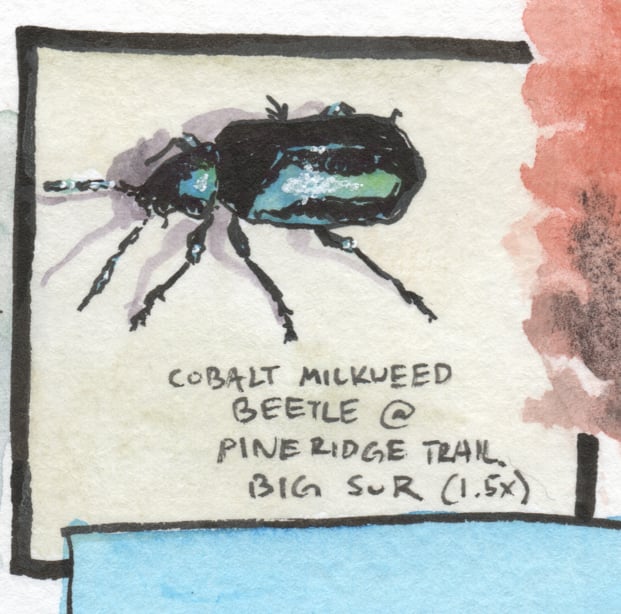 COBALT MILKWEED
BEETLE @
PINE RIDGE TRAIL.
BIG SUR (1.5X)